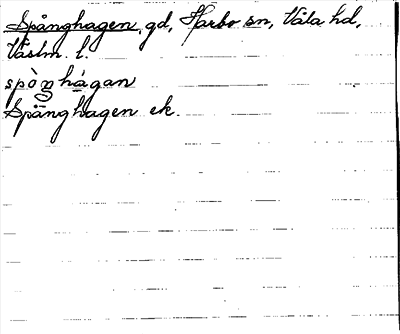 Spånghagen, gd, Harbo sn, Våla hd,
Västm. l.
spòŋhàgan
Spånghagen ek.